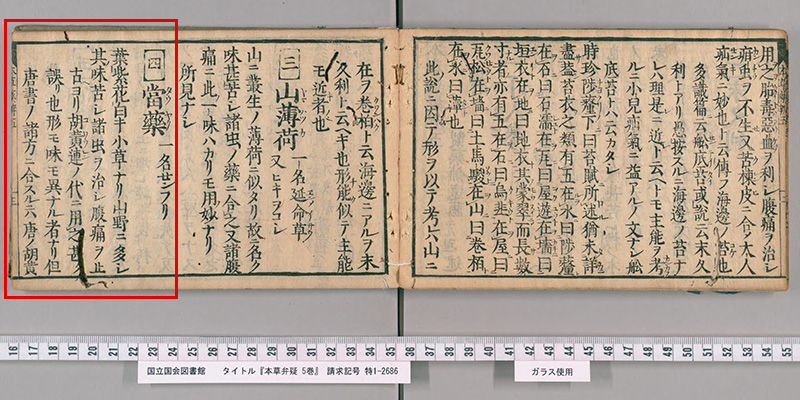 用之胸毒惡血ヲ利シ腹痛ヲ治シ
疝虫ヲ不生又苦楝皮ニ入レ大人
疝氣ニ妙也ト云傳フ海邊ノ苔也
多識篇云舩底苔或說云末久
利トアリ愚按スルニ海邊ノ苔ナ
レハ理是ニ近ト云ヘトモ主能ヲ考
ルニ小兒疝氣ニ益アルノ文ナシ舩
底苔トハ云カタシ
時珍陟釐下曰苔賦所述猶未詳
盡蓋苔衣之類有五在水曰陟釐
在石曰石濡在瓦曰屋遊在墻曰
垣衣在地曰地衣其蒙翠而長數
寸者亦有五在石曰烏韭在屋曰
瓦松在墻曰土馬騣在山曰卷栢
在水曰薄也
此說ニ因テ形ヲ以テ考ハ山ニ
在ヲ卷栢ト云海邊ニアルヲ末
久利ト云ヘキ也形能似テ主能
モ近者也
〔三〕山薄荷 一名延命草
又ヒキヲコシ
山ニ叢生ノ薄荷ニ似タリ故ニ名ク
味甚苦シ諸虫ノ藥ニ合之又諸腹
痛ニ此一味ハカリモ用妙ナリ
所見ナシ
〔四〕當藥 一名センフリ
タウヤク
葉紫花白キ小草ナリ山野ニ多シ
其味苦シ諸虫ヲ治シ腹痛ヲ止
古ヨリ胡黃連ノ代ニ用之甚
誤リ也形モ味モ異ナル者ナリ但
唐書ノ諸方ニ合スルニハ唐ノ胡黃
16 17 18 19 20 21 22 23 24 25 26 27 28 29 30 31 32 33 34 35 36 37 38 39 40 41 42 43 44 45 46 47 48 49 50 51 52 53 54 55
国立国会図書館 タイトル『本草弁疑 5巻』 請求記号 特1-2686
ガラス使用